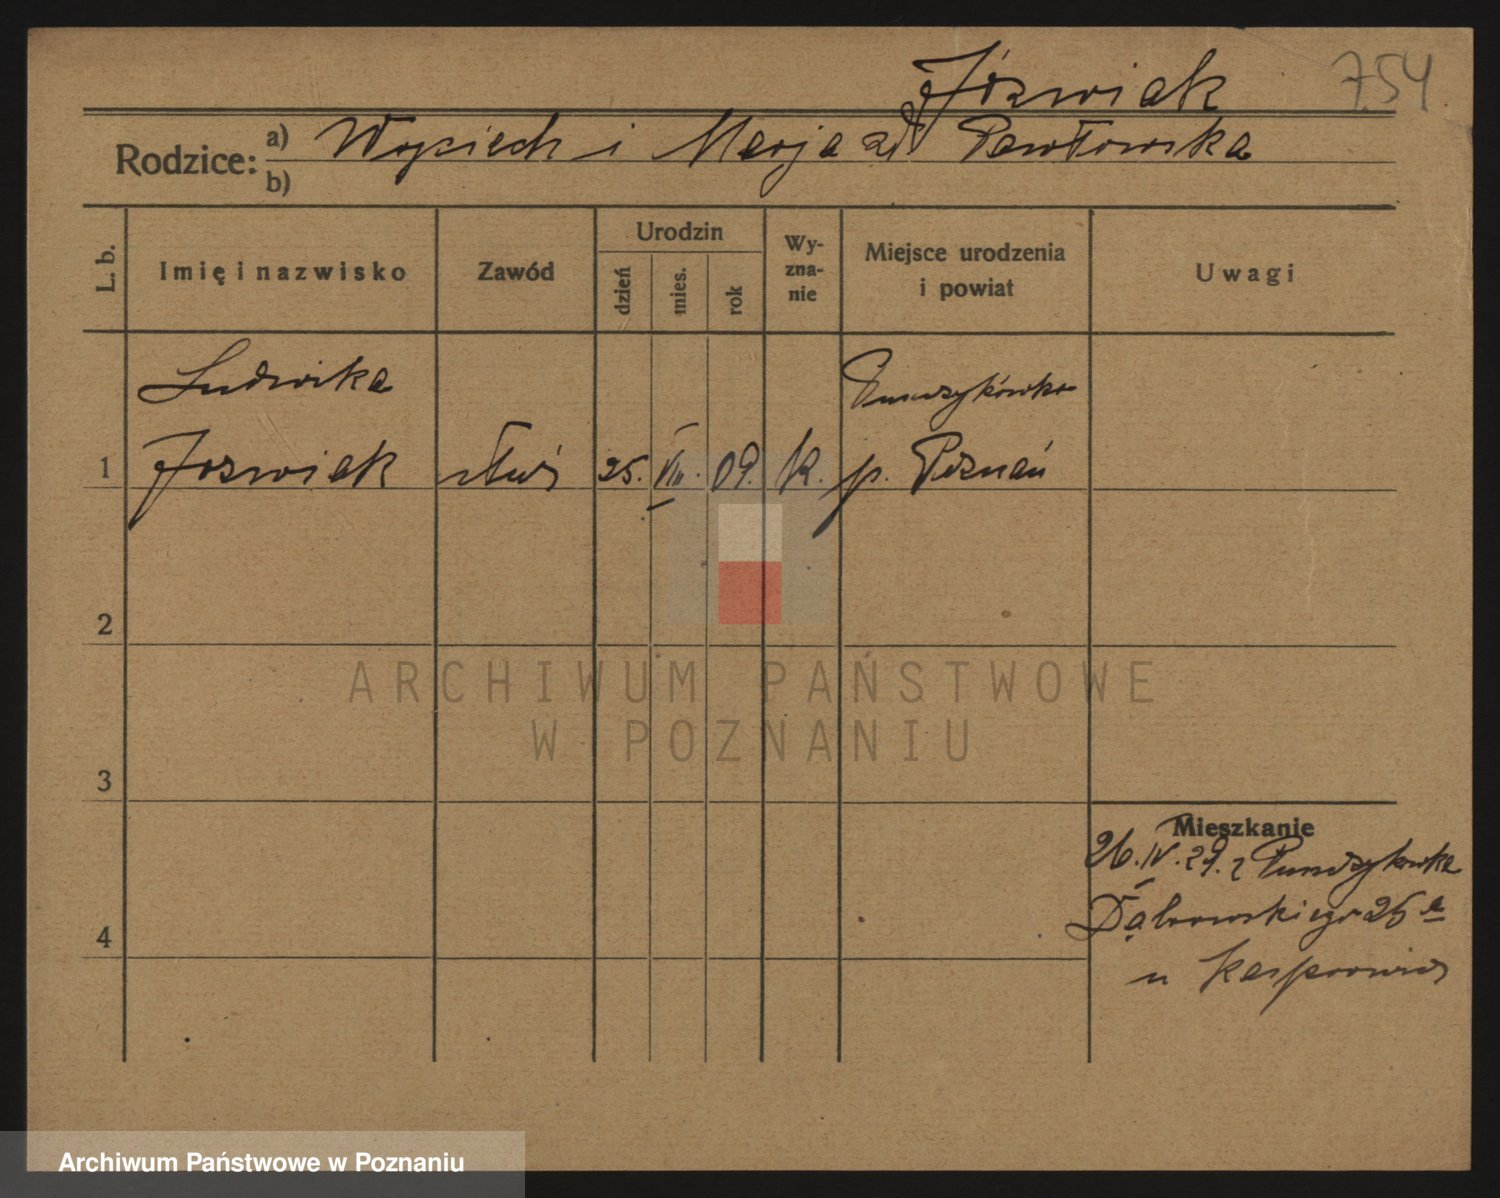 Józwiak
754
Rodzice:
a) Wojciech i Marja zd Pawłowska
b)
L. b.
Imię i nazwisko
Zawód
Urodzin
dzień
mies.
rok
Wy-
zna-
nie
Miejsce urodzenia
i powiat
Uwagi
Ludwika
Puszczykówko
1 Jozwiak służ 25. VIII. 09. k. p. Poznań
2
3
4
Mieszkanie
26. IV. 29. z Puszczykówka
Dąbrowskiego 25
u Kasprowicz
ARCHIWUM PAŃSTWOWE
W POZNANIU
Archiwum Państwowe w Poznaniu